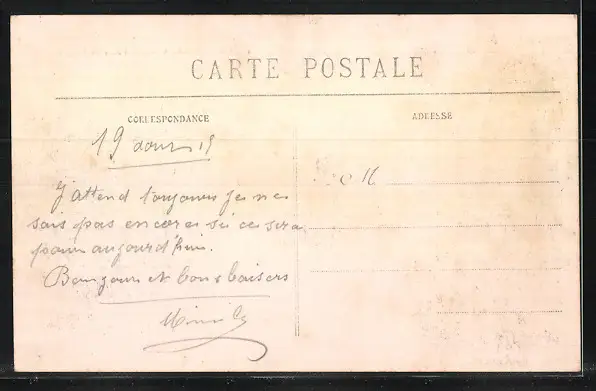 CARTE POSTALE
CORRESPONDANCE
ADRESSE
19 15
J'attend toujours je ne
sais pas encore si ce sera
pour aujourd'hui.
Bonjour et bons baisers